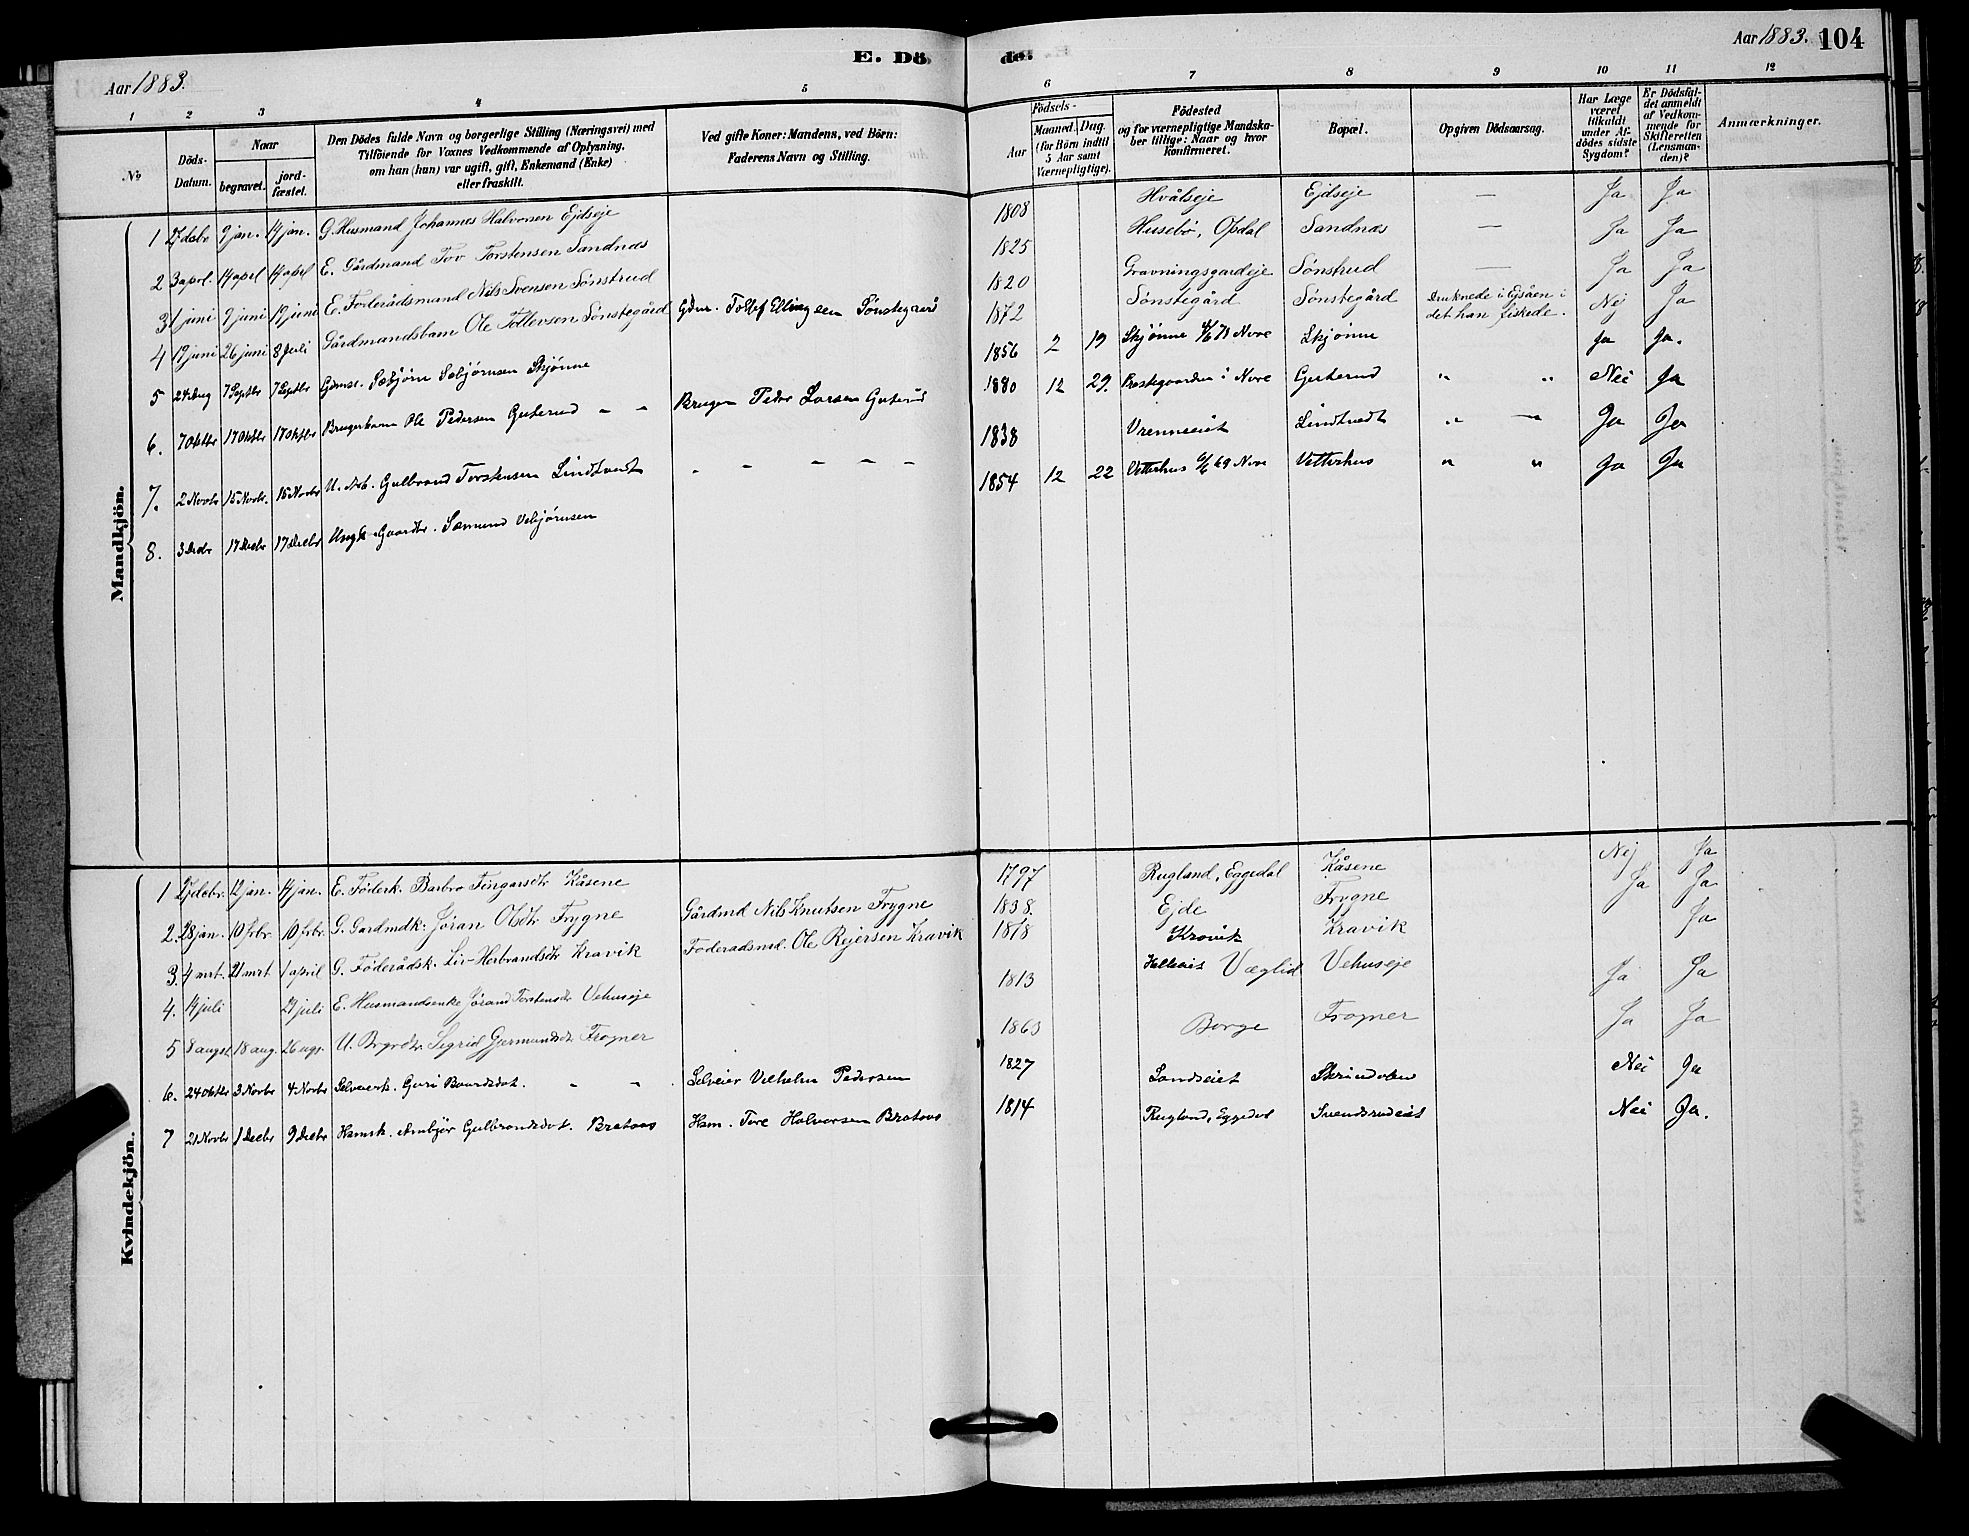 Aar 1883.
E. Dö
de.
Aar 1883. 104
1 2 3 4 5
6 7 8 9 10 11 12
No
Döds-Datum.
Naar
begravet.
jord-fæstet.
Den Dödes fulde Navn og borgerlige Stilling (Næringsvei) med
Tilföiende for Voxnes Vedkommende af Oplysning,
om han (hun) var ugift, gift, Enkemand (Enke)
eller fraskilt.
Ved gifte Koner: Mandens, ved Börn:
Faderens Navn og Stilling.
Födsels-
Aar
Maaned. Dag.
(for Börn indtil
5 Aar samt
Værnepligtige).
Födested
og for værnepligtige Mandska-
ber tillige: Naar og hvor
konfirmeret.
Bopæl.
Opgiven Dödsaarsag.
Har Læge
været
tilkaldt
under Af-
dödes sidste
Sygdom?
Er Dödsfal-
det anmeldt
af Vedkom-
mende for
Skifteretten
(Lensman-
den)?
Anmærkninger.
Mandkjön.
1 27 debr 9 jan. 14 jan. G. Husmand Johannes Halvorsen Ejdseje 1808 Hvålseje Ejdseje — Ja Ja
2 3 aprl. 14 aprl 14 aprl E. Gårdmand Tov Torstensen Sandnæs 1825 Husebø, Opdal Sandnæs — Ja Ja
3 1 juni 9 juni 19 juni E. Foderådsmand Nils Svensen Sønstrud 1820 Gravningsgardeje Sønstrud — Ja Ja
4 19 juni 26 juni 8 Juli Gårdmandsbarn Ole Tollevsen Sønstegård Gdm. Tollef Ellingsen Sønstegaard 1872 Sønstegård Sønstegård druknede i Ejsåen i
det han fiskede. Nej Ja
5 24 Aug 7 Septbr 7 Septbr Gdmsr. Sebjørn Sebjørnsen Skjønne 1856 2 19 Skjønne 4/6 71 Nore Skjønne Ja Ja.
6. 7 Oktbr 17 Oktbr 17 Oktbr Brugerbarn Ole Pedersen Guterud - - Bruger Peder Larsen Guterud 1880 12 29. Prestegaarden i Nore Guterud " " Nei Ja
7. 2 Novbr 15 Novbr. 15 Novbr U. Arb. Gulbrand Torstensen Lindtvedt - - - - - 1838 Vrenneeiet Lindtvedt " — Ja Ja
8. 3 Decbr 17 Decbr 17 Decbr Ungk. Gaardbr. Sæmund Vebjørnsen 1854 12 22 Vetterhus 6/6 69 Nore Vetterhus " " Ja Ja
Kvindekjön.
1 27 debr. 12 jan. 14 jan. E. Føderk. Barbro Fingarsdtr Kåsene 1797 Rugland, Eggedal Kåsene Nej Ja
2. 28 jan. 10 frbr. 10 frbr. G. Gardmdk. Jöran Olsdtr Frygne Gårdmd Nils Knutsen Frygne 1838. Ejde Frygne Ja Ja
3. 4 mrt. 21 mrt 1 april G. Føderådsk. Liv Herbrandsdtr Kravik Foderadsmd. Ole Rejersen Kravik 1818 Kravik Kravik Ja
4. 14 juli 29 juli E. Husmandsenke Jörand Torstensdtr Vehuseje 1813 Helleeiet Væglid Vehuseje Ja Ja
5 8 augst. 18 aug. 26 ags. U. Brgrdtr. Sigrid Gjermundsdtr Frogner 1863 Borge Frogner Ja Ja
6. 24 oktbr 3 Novbr 4 Novbr Selveierk. Guri Baardsdat. - - Selveier Vilhelm Pedersen 1827 Landseiet Skrindolen Nei Ja
7 21 Novbr 1 Decbr 9 Decbr Hamsk. Ambjør Gulbrandsdat. Brataas Ham. Tore Halvorsen Brataas 1814 Rugland, Eggedal Svendsrudeiet Nei Ja.